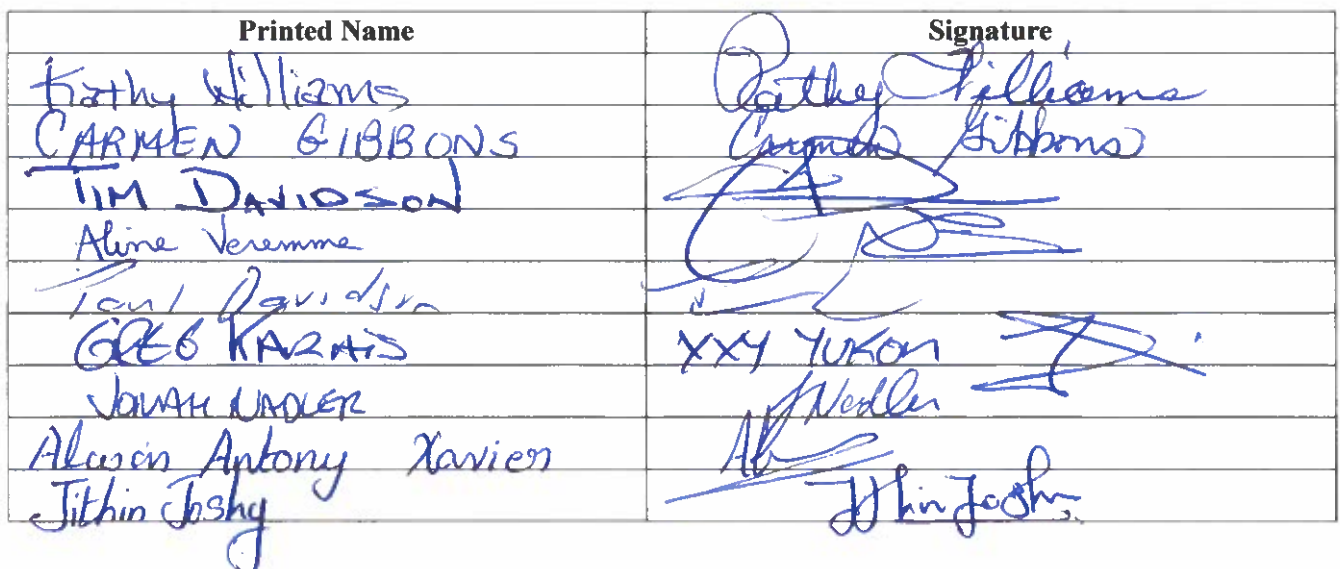 Printed Name Signature
Kathy Williams Kathy Williams
CARMEN GIBBONS Carmen Gibbons
TIM DAVIDSON
Aline Veremme
Paul Davidson
GREG KARAIS XXY YUKON
JONAH NADLER J Nadler
Antony Xavier
Jithin Joshy Jithin Joshy